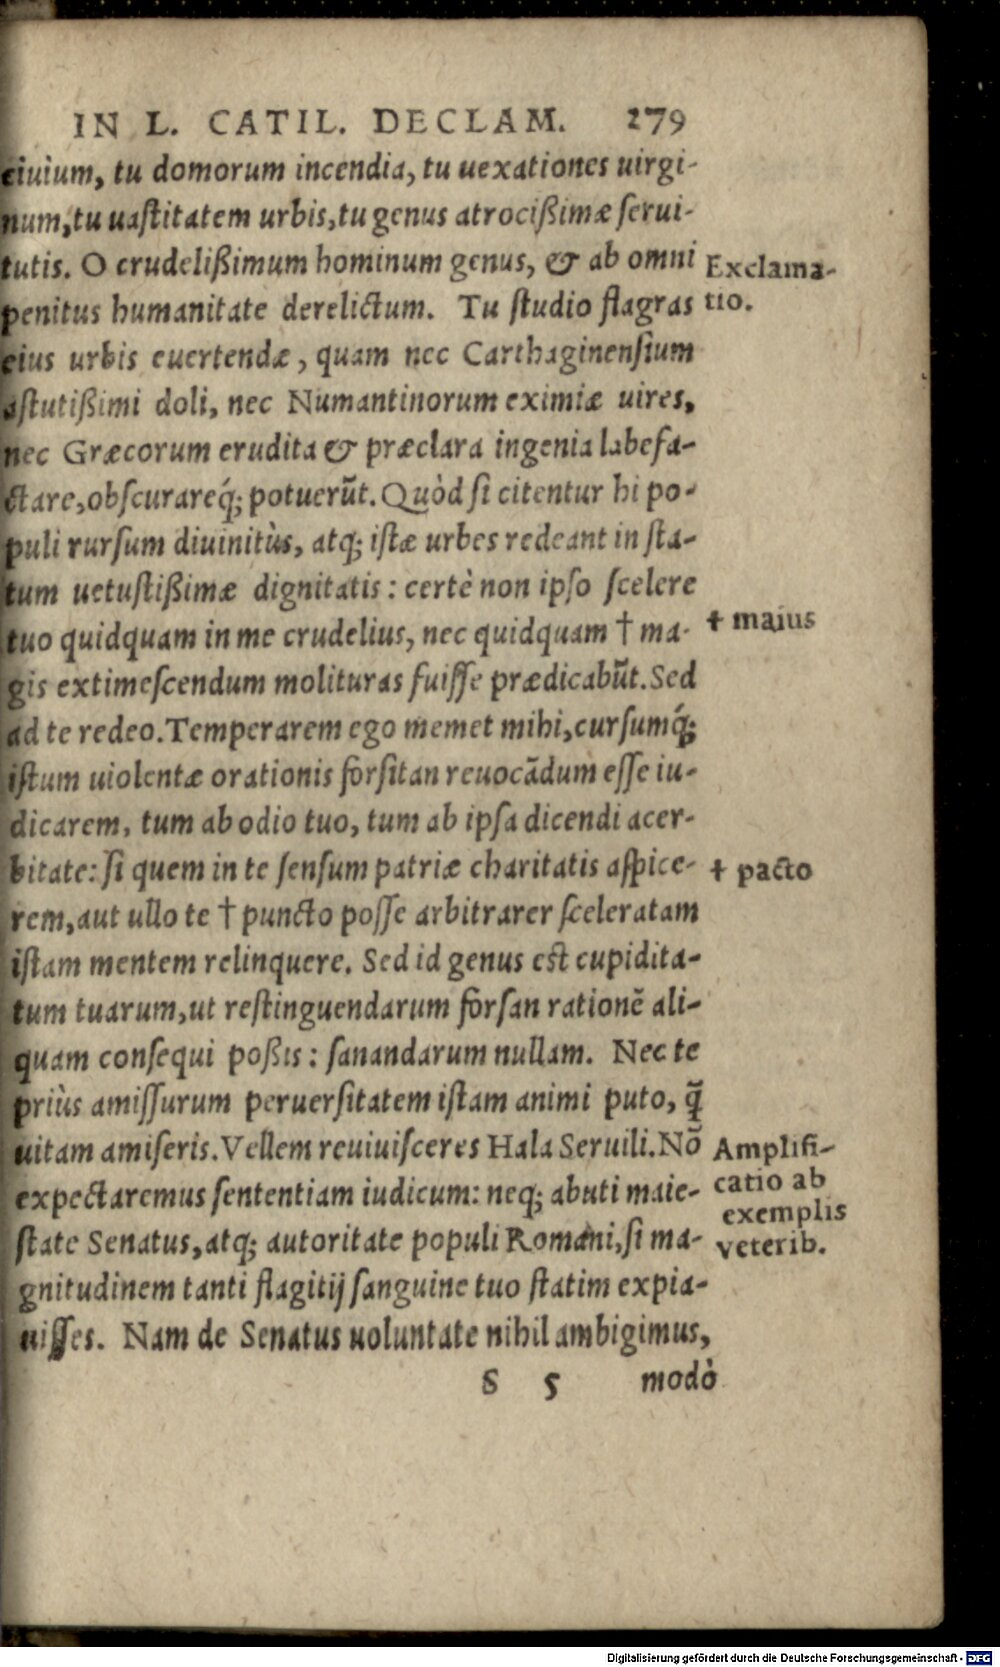 IN L. CATIL. DECLAM. 279
ciuium, tu domorum incendia, tu uexationes uirgi-
num, tu uaſtitatem urbis, tu genus atrocißimæ ſerui-
tutis. O crudelißimum hominum genus, & ab omni
Exclama-
penitus humanitate derelictum. Tu ſtudio flagras
tio.
eius urbis euertendæ, quam nec Carthaginenſium
aſtutißimi doli, nec Numantinorum eximiæ uires,
nec Græcorum erudita & præclara ingenia labefa-
ctare, obſcurareq́; potuerũt. Quòd ſi citentur hi po-
puli rurſum diuinitùs, atq; iſtæ urbes redeant in ſta-
tum uetuſtißimæ dignitatis: certè non ipſo ſcelere
tuo quidquam in me crudelius, nec quidquam † ma-
† maius
gis extimeſcendum molituras fuiſſe prædicabũt. Sed
ad te redeo. Temperarem ego memet mihi, curſumq́;
iſtum uiolentæ orationis forſitan reuocãdum eſſe iu-
dicarem, tum ab odio tuo, tum ab ipſa dicendi acer-
bitate: ſi quem in te ſenſum patriæ charitatis aſpice-
† pacto
rem, aut ullo te † puncto poſſe arbitrarer ſceleratam
iſtam mentem relinquere. Sed id genus eſt cupidita-
tum tuarum, ut reſtinguendarum forſan rationē ali-
quam conſequi poßis: ſanandarum nullam. Nec te
priùs amiſſurum peruerſitatem iſtam animi puto, q̃
uitam amiſeris. Vellem reuiuiſceres Hala Seruili. Nō
Amplifi-
expectaremus ſententiam iudicum: neq; abuti maie-
catio ab
exemplis
ſtate Senatus, atq; autoritate populi Romani, ſi ma-
veterib.
gnitudinem tanti flagitij ſanguine tuo ſtatim expia-
uiſſes. Nam de Senatus uoluntate nihil ambigimus,
S 5 modò
Digitalisierung gefördert durch die Deutsche Forschungsgemeinschaft - DFG